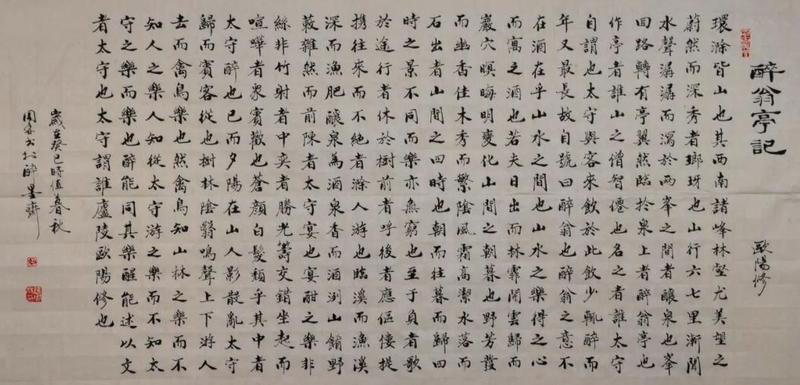 醉翁亭記
歐陽修
環滁皆山也其西南諸峰林壑尤美望之
蔚然而深秀者瑯琊也山行六七里漸聞
水聲潺潺而瀉於兩峯之間者釀泉也峯
回路轉有亭翼然臨於泉上者醉翁亭也
作亭者誰山之僧智僊也名之者誰太守
自謂也太守與客來飲於此飲少輒醉而
年又最長故自號曰醉翁也醉翁之意不
在酒在乎山水之間也山水之樂得之心
而寓之酒也若夫日出而林霏開雲歸而
巖穴暝晦明變化山間之朝暮也野芳發
而幽香佳木秀而繁陰風霜高潔水落而
石出者山間之四時也朝而往暮而歸四
時之景不同而樂亦無窮也至于負者歌
於途行者休於樹前者呼後者應傴僂提
攜往來而不絕者滁人游也臨溪而漁溪
深而漁肥釀泉為酒泉香而酒洌山餚野
蔌雜然而前陳者太守宴也宴酣之樂非
絲非竹射者中奕者勝光籌交錯坐起而
喧嘩者衆賓歡也蒼顏白髮頹乎其中者
太守醉也已而夕陽在山人影散亂太守
歸而賓客從也樹林陰翳鳴聲上下游人
去而禽鳥樂也然禽鳥知山林之樂而不
知人之樂人知從太守游之樂而不知太
守之樂而樂也醉能同其樂醒能述以文
者太守也太守謂誰廬陵歐陽修也
歲在癸巳時值春秋
書於醉墨齋